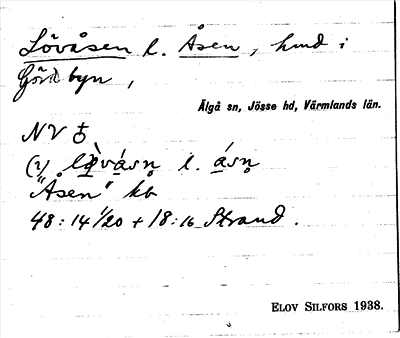 Lövåsen l. Åsen, hmd i
Gördbyn,
Älgå sn, Jösse hd, Värmlands län.
NV
(?) lövåsn l. åsn
"Åsen" kb
48:14 1/20 + 18:16 Strand.
ELOV SILFORS 1938.